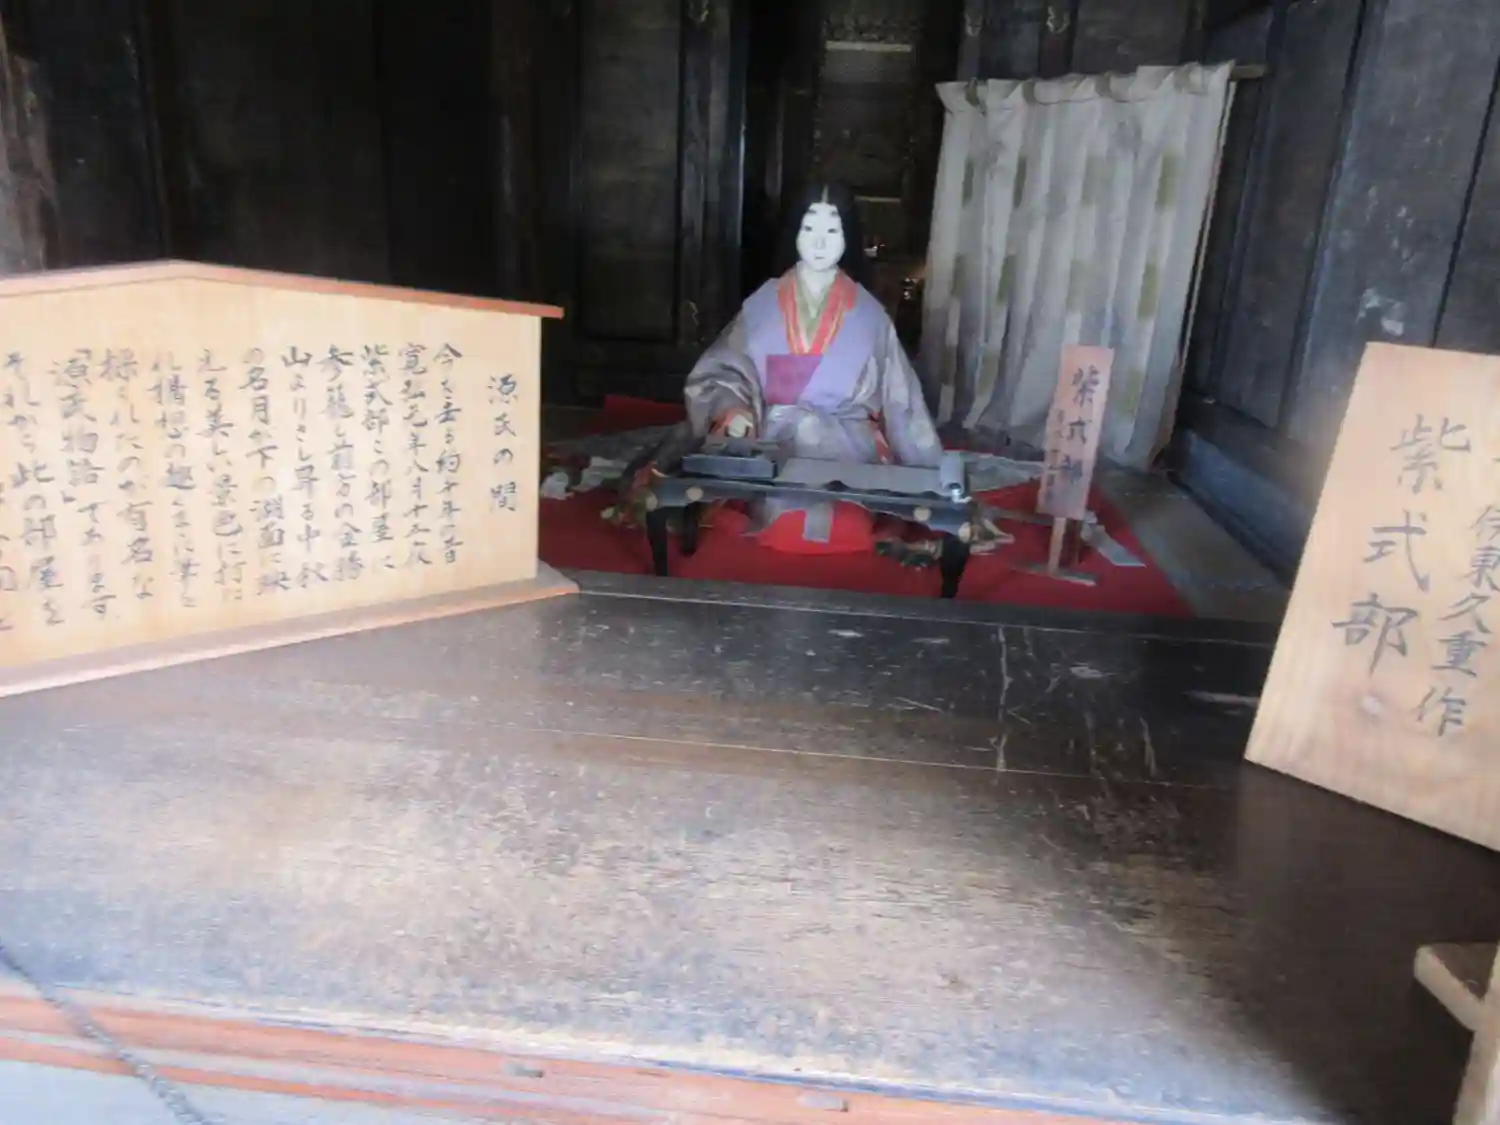 源氏の間
今を去る約千年の昔
寛弘元年八月十五夜
紫式部この部屋に
参籠し前方の金勝
山よりさし昇る中秋
の名月が下の湖面に映
える美しい景色に打た
れ構想の趣くまゝに筆を
採られたのが有名な
「源氏物語」であります
それから此の部屋を
紫式部
紫式部
伊東久重作